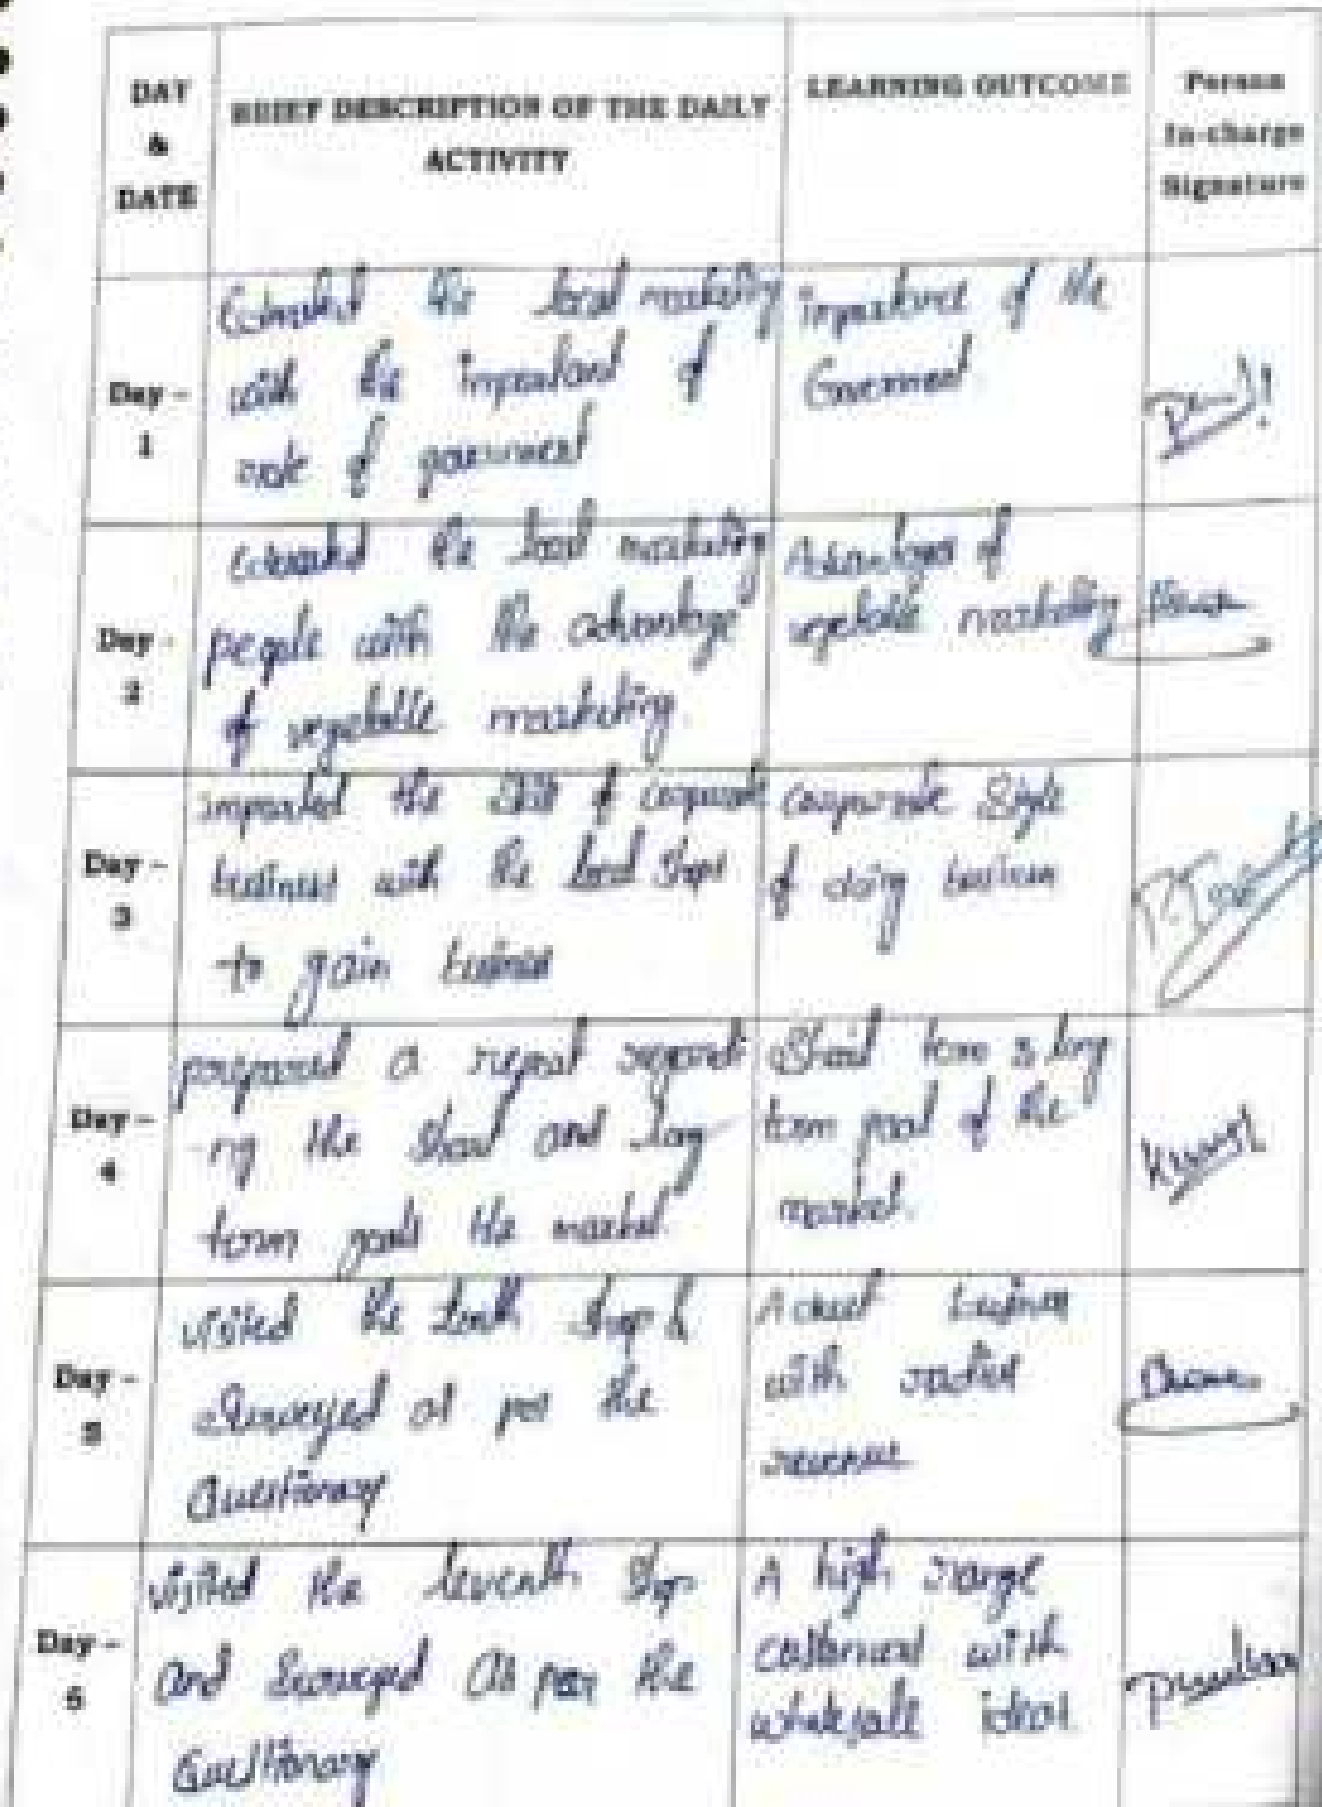 DAY
&
DATE
BRIEF DESCRIPTION OF THE DAILY
ACTIVITY
LEARNING OUTCOME
Person
In-charge
Signature
Day -
1
the local marketing
with the important of
role of government
importance of the
Government.
Day -
2
the local marketing
people with the advantage
of vegetable marketing.
Advantages of
vegetable marketing
Day -
3
imparted the of corporate
business with the local shops
to gain business
corporate style
of doing business
Day -
4
prepared a report regardi
-ng the short and long
term goals the market.
Short term & long
term goal of the
market.
Day -
5
visited the tenth shop &
surveyed as per the
Questionary
business
with
revenue
Day -
6
visited the shop
and surveyed as per the
Questionary
A high range
customers with
wholesale ideas